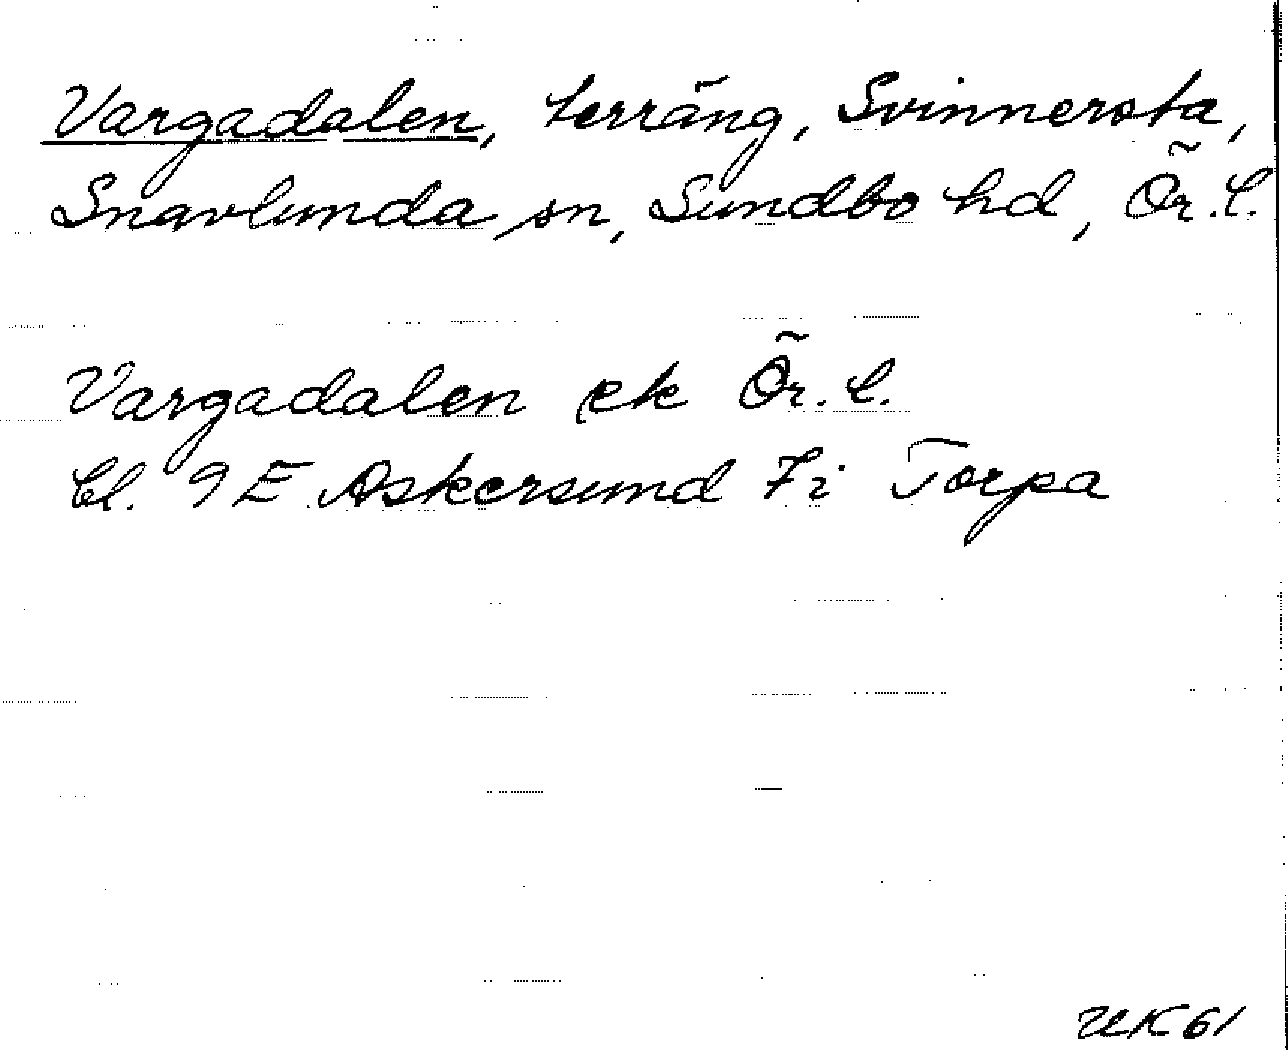 Vargadalen, terräng, Svinnersta,
Snavlunda sn, Sundbo hd, Ör. l.
Vargadalen ek Ör. l.
bl. 9 E Askersund 7i Torpa
UK 61